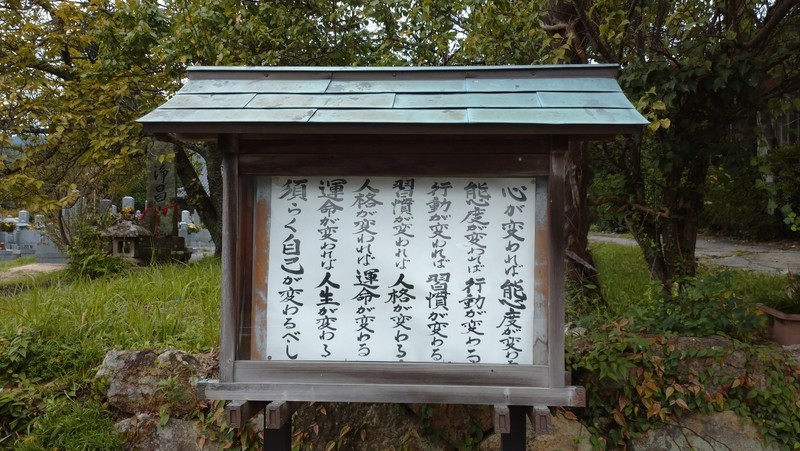 心が変われば態度が変わる
態度が変われば行動が変わる
行動が変われば習慣が変わる
習慣が変われば人格が変わる
人格が変われば運命が変わる
運命が変われば人生が変わる
須らく自己が変わるべし